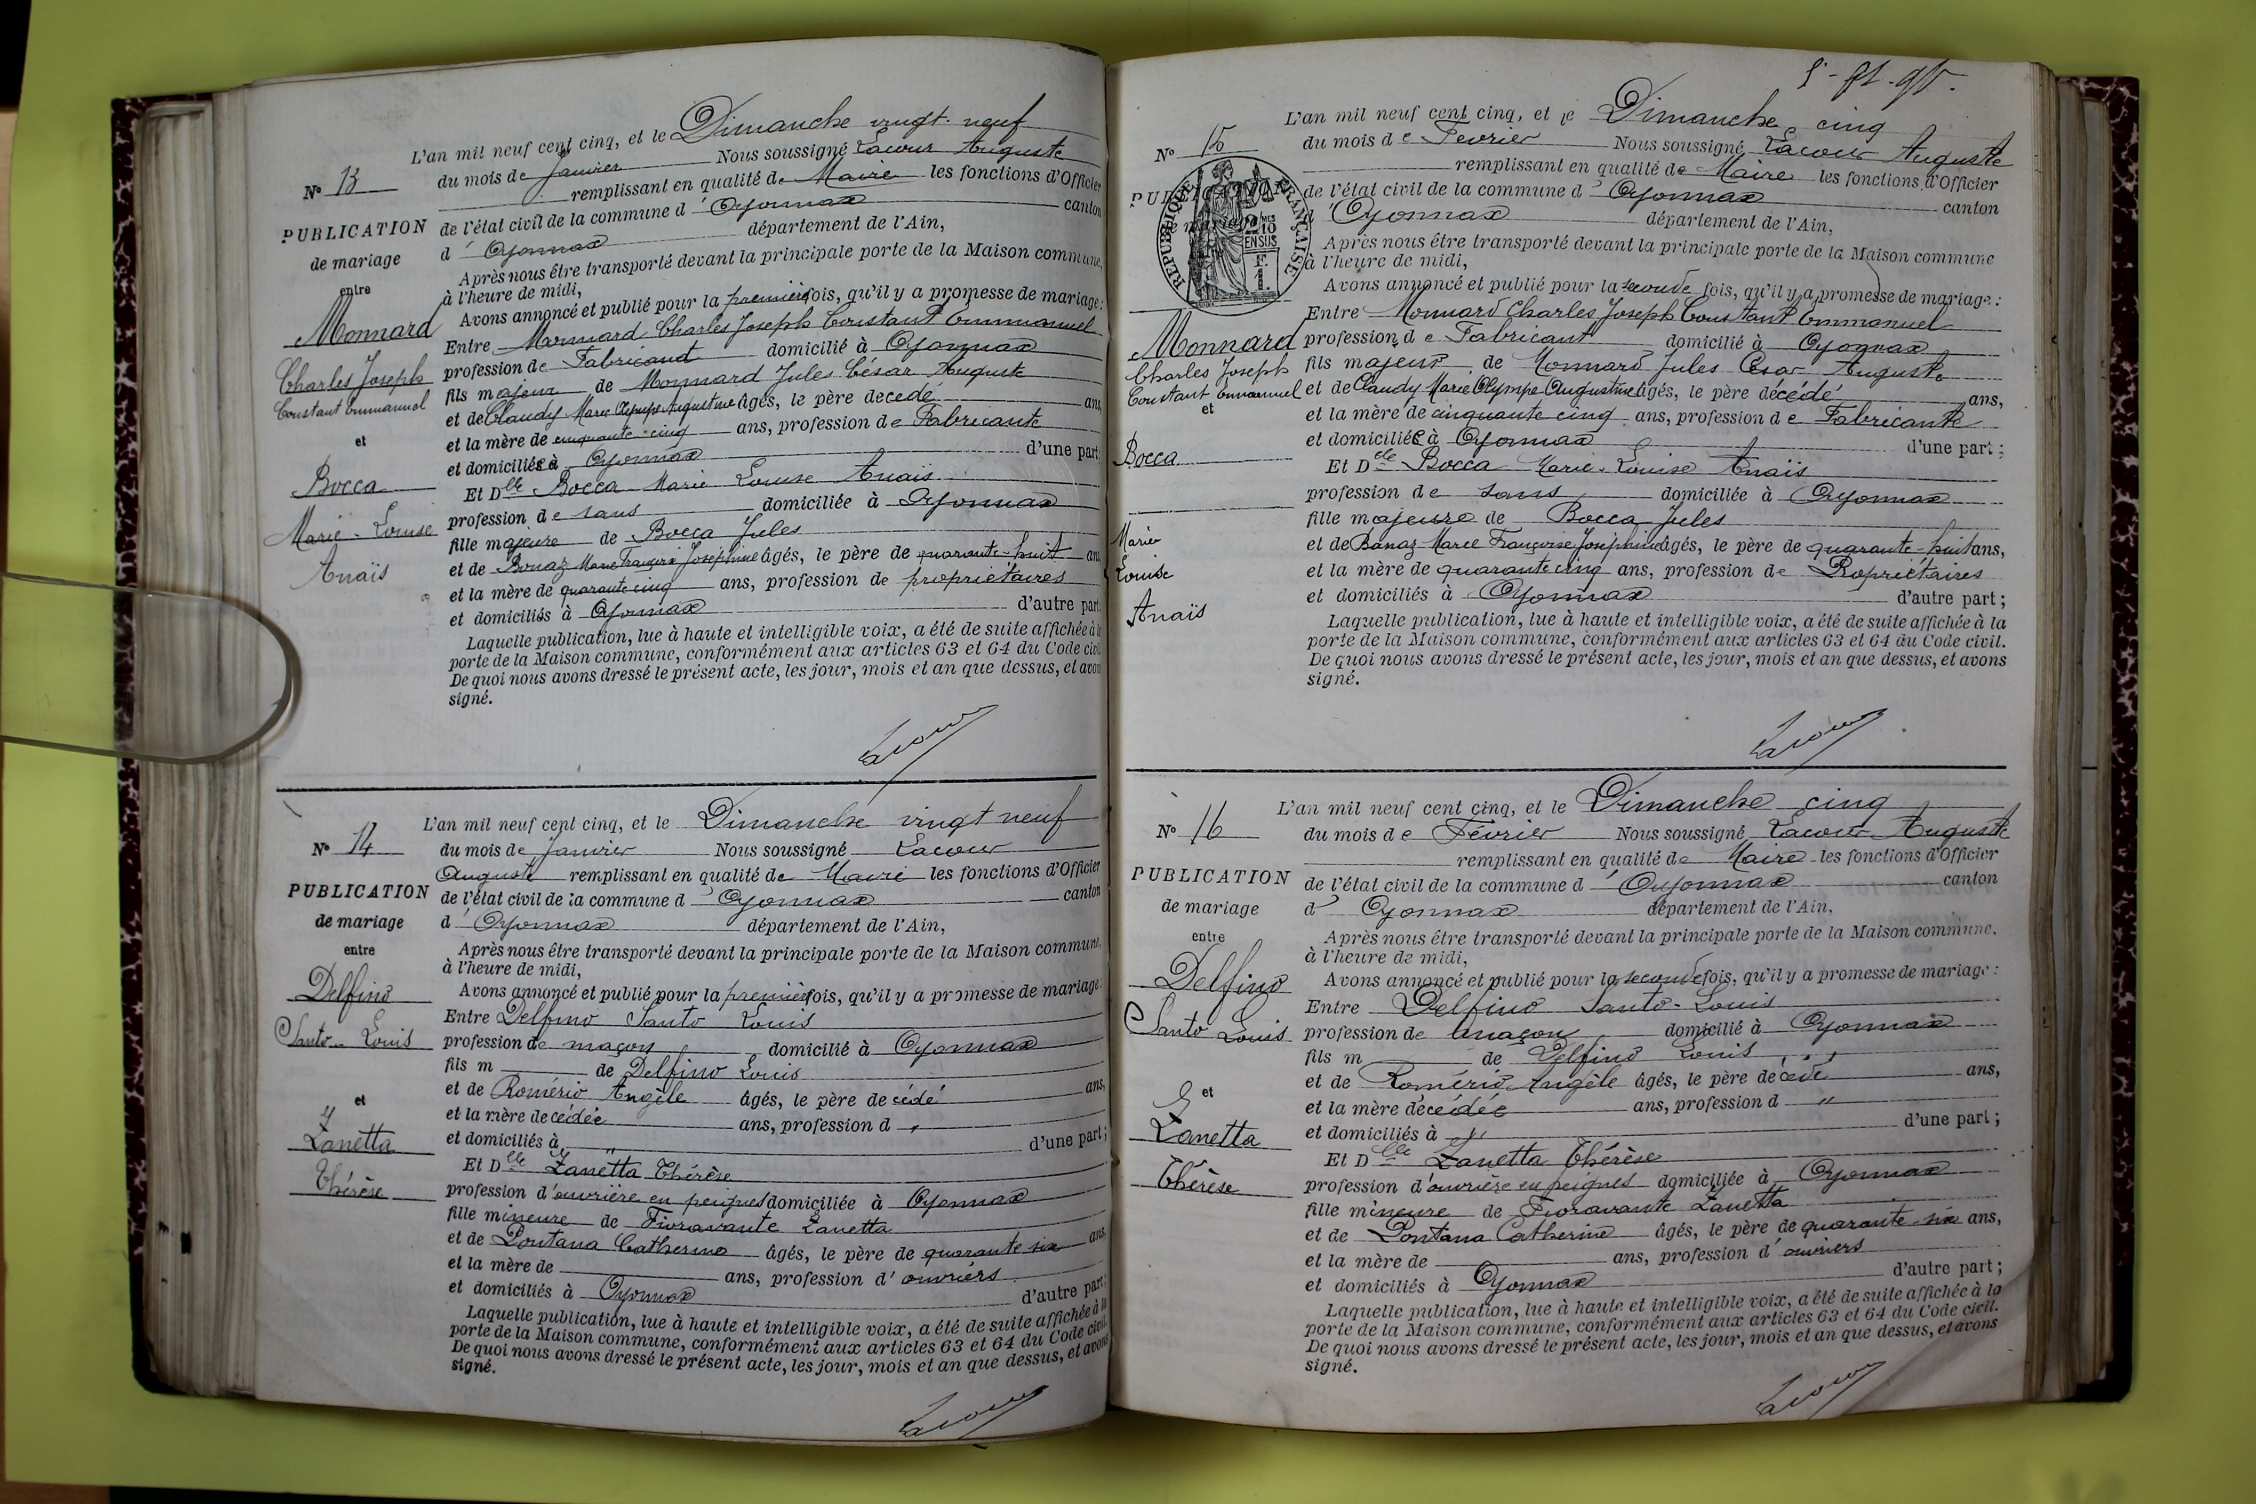 L'an mil neuf cent cinq, et le Dimanche vingt-neuf
du mois de Janvier Nous soussigné Lacour Auguste
Nº 13
remplissant en qualité de Maire les fonctions d'Officier
PUBLICATION
de mariage
entre
Monnard
Charles Joseph
Constant Emmanuel
et
Bocca
Marie-Louise
Anaïs
de l'état civil de la commune d'Oyonnax canton
d'Oyonnax département de l'Ain,
Après nous être transporté devant la principale porte de la Maison commune,
à l'heure de midi,
Avons annoncé et publié pour la première fois, qu'il y a promesse de mariage:
Entre Monnard Charles Joseph Constant Emmanuel
profession de Fabricant domicilié à Oyonnax
fils majeur de Monnard Jules César Auguste
et de Claudy Marie Olympe Augustine âgés, le père decédé ans,
et la mère de cinquante-cinq ans, profession de Fabricante
et domiciliée à Oyonnax d'une part
Et Dlle Bocca Marie Louise Anaïs
profession de sans domiciliée à Oyonnax
fille majeure de Bocca Jules
et de Bonaz Marie Françoise Joséphine âgés, le père de quarante-huit ans
et la mère de quarante cinq ans, profession de propriétaires
et domiciliés à Oyonnax d'autre part
Laquelle publication, lue à haute et intelligible voix, a été de suite affichée à la
porte de la Maison commune, conformément aux articles 63 et 64 du Code civil
De quoi nous avons dressé le présent acte, les jour, mois et an que dessus, et avons
signé.
Lacour
L'an mil neuf cent cinq, et le Dimanche vingt neuf
Nº 14
PUBLICATION
de mariage
entre
Delfino
Santo-Louis
et
Zanetta
Thérèse
du mois de Janvier Nous soussigné Lacour
Auguste remplissant en qualité de Maire les fonctions d'Officier
de l'état civil de la commune d'Oyonnax canton
d'Oyonnax département de l'Ain,
Après nous être transporté devant la principale porte de la Maison commune,
à l'heure de midi,
Avons annoncé et publié pour la première fois, qu'il y a promesse de mariage:
Entre Delfino Santo Louis
profession de maçon domicilié à Oyonnax
fils m de Delfino Louis
et de Romério Angèle âgés, le père décédé ans,
et la mère decédée ans, profession d "
et domiciliés à " d'une part;
Et Dlle Zanetta Thérèse
profession d'ouvrière en peignes domiciliée à Oyonnax
fille mineure de Fioravante Zanetta
et de Pontana Catherine âgés, le père de quarante six ans,
et la mère de ans, profession d'ouvriers
et domiciliés à Oyonnax d'autre part;
Laquelle publication, lue à haute et intelligible voix, a été de suite affichée à la
porte de la Maison commune, conformément aux articles 63 et 64 du Code civil.
De quoi nous avons dressé le présent acte, les jour, mois et an que dessus, et avons
signé.
Lacour
L'an mil neuf cent cinq, et le Dimanche cinq
Nº 15
PUBLICATION
de mariage
RÉPUBLIQUE FRANÇAISE
2 MES
10
EN SUS
F.
1.
Monnard
Charles Joseph
Constant Emmanuel
et
Bocca
Marie
Louise
Anaïs
du mois de Fevrier Nous soussigné Lacour Auguste
remplissant en qualité de Maire les fonctions d'Officier
de l'état civil de la commune d'Oyonnax canton
d'Oyonnax département de l'Ain,
Après nous être transporté devant la principale porte de la Maison commune
à l'heure de midi,
Avons annoncé et publié pour la seconde fois, qu'il y a promesse de mariage:
Entre Monnard Charles Joseph Constant Emmanuel
profession de Fabricant domicilié à Oyonnax
fils majeur de Monnard Jules César Auguste
et de Claudy Marie Olympe Augustine âgés, le père décédé ans,
et la mère de cinquante cinq ans, profession de Fabricante
et domiciliée à Oyonnax d'une part;
Et Dlle Bocca Marie-Louise Anaïs
profession de sans domiciliée à Oyonnax
fille majeure de Bocca Jules
et de Bonaz Marie Françoise Joséphine âgés, le père de quarante-huit ans,
et la mère de quarante cinq ans, profession de Propriétaires
et domiciliés à Oyonnax d'autre part;
Laquelle publication, lue à haute et intelligible voix, a été de suite affichée à la
porte de la Maison commune, conformément aux articles 63 et 64 du Code civil.
De quoi nous avons dressé le présent acte, les jour, mois et an que dessus, et avons
signé.
Lacour
L'an mil neuf cent cinq, et le Dimanche cinq
Nº 16
PUBLICATION
de mariage
entre
Delfino
Santo Louis
et
Zanetta
Thérèse
du mois de Février Nous soussigné Lacour Auguste
remplissant en qualité de Maire les fonctions d'Officier
de l'état civil de la commune d'Oyonnax canton
d'Oyonnax département de l'Ain,
Après nous être transporté devant la principale porte de la Maison commune,
à l'heure de midi,
Avons annoncé et publié pour la seconde fois, qu'il y a promesse de mariage:
Entre Delfino Santo-Louis
profession de maçon domicilié à Oyonnax
fils m de Delfino Louis
et de Romério Angèle âgés, le père décédé ans,
et la mère décédée ans, profession d "
et domiciliés à " d'une part;
Et Dlle Zanetta Thérèse
profession d'ouvrière en peignes domiciliée à Oyonnax
fille mineure de Fioravante Zanetta
et de Pontana Catherine âgés, le père de quarante-six ans,
et la mère de ans, profession d'ouvriers
et domiciliés à Oyonnax d'autre part;
Laquelle publication, lue à haute et intelligible voix, a été de suite affichée à la
porte de la Maison commune, conformément aux articles 63 et 64 du Code civil.
De quoi nous avons dressé le présent acte, les jour, mois et an que dessus, et avons
signé.
Lacour